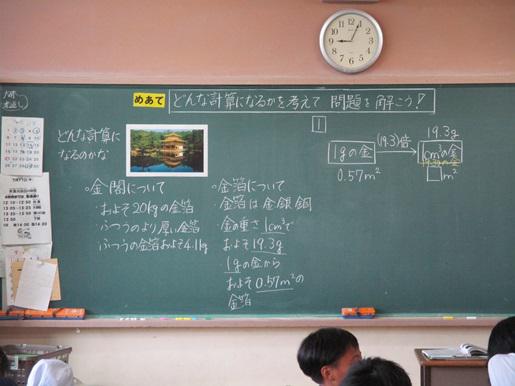 めあて どんな計算になるかを考えて 問題を解こう!
どんな計算に
なるのかな
。金閣について
およそ20kgの金箔
ふつうのより厚い金箔
ふつうの金箔およそ4.1kg
。金箔について
金箔は金・銀・銅
金の重さ 1cm³で
およそ19.3g
1gの金から
およそ0.57m²の
金箔
1
1gの金
0.57m²
(19.3)倍
19.3g
1cm³の金
19.3gの金
m²